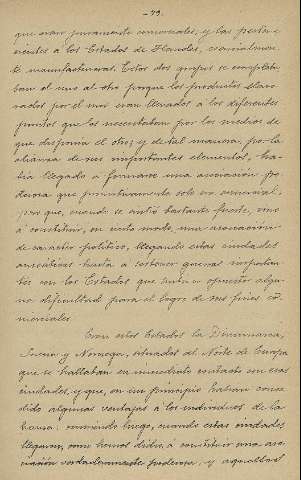 - 79 -
que eran puramente comerciales, y las pertene-
cientes a los Estados de Flandes, esencialmen-
te manufactureras. Estos dos grupos se completa-
ban el uno al otro porque los productos elabo-
rados por el uno eran llevados a los diferentes
puntos que los necesitaban por los medios de
que disponia el otro; y de tal manera, por la
alianza de sus importantes elementos, ha-
bia llegado a formarse una asociación po-
derosa que primitivamente solo era comercial,
pero que, cuando se sintió bastante fuerte, vino
á constituir, en cierto modo, una asociación
de carácter politico, llegando estas ciudades
anseáticas hasta á sostener guerras importan-
tes con los Estados que oponian alguna
dificultad para el logro de sus fines co-
merciales.
Eran estos Estados la Dinamarca,
Suecia y Noruega, situados al Norte de Europa
que se hallaban en inmediato contacto con esas
ciudades, y que, en un principio habian conce-
dido algunas ventajas a los individuos de la
hansa; viniendo luego, cuando estas ciudades
llegaron, como hemos dicho, á constituir una aso-
ciación verdaderamente poderosa, y aquellos